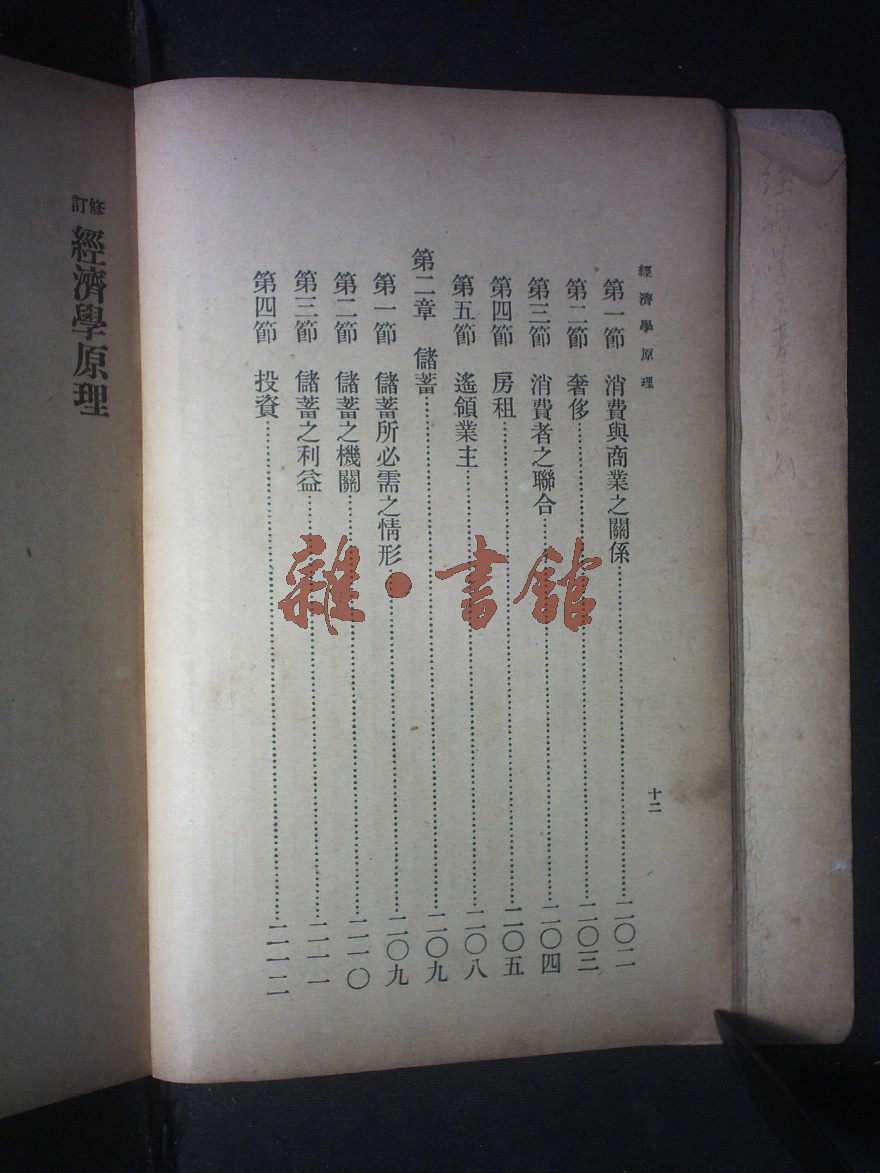 經濟學原理
十二
第一節 消費與商業之關係……二〇二
第二節 奢侈……二〇三
第三節 消費者之聯合……二〇四
第四節 房租……二〇五
第五節 遙領業主……二〇八
第二章 儲蓄……二〇九
第一節 儲蓄所必需之情形……二〇九
第二節 儲蓄之機關……二一〇
第三節 儲蓄之利益……二一一
第四節 投資……二一二
修訂 經濟學原理
雜·書館